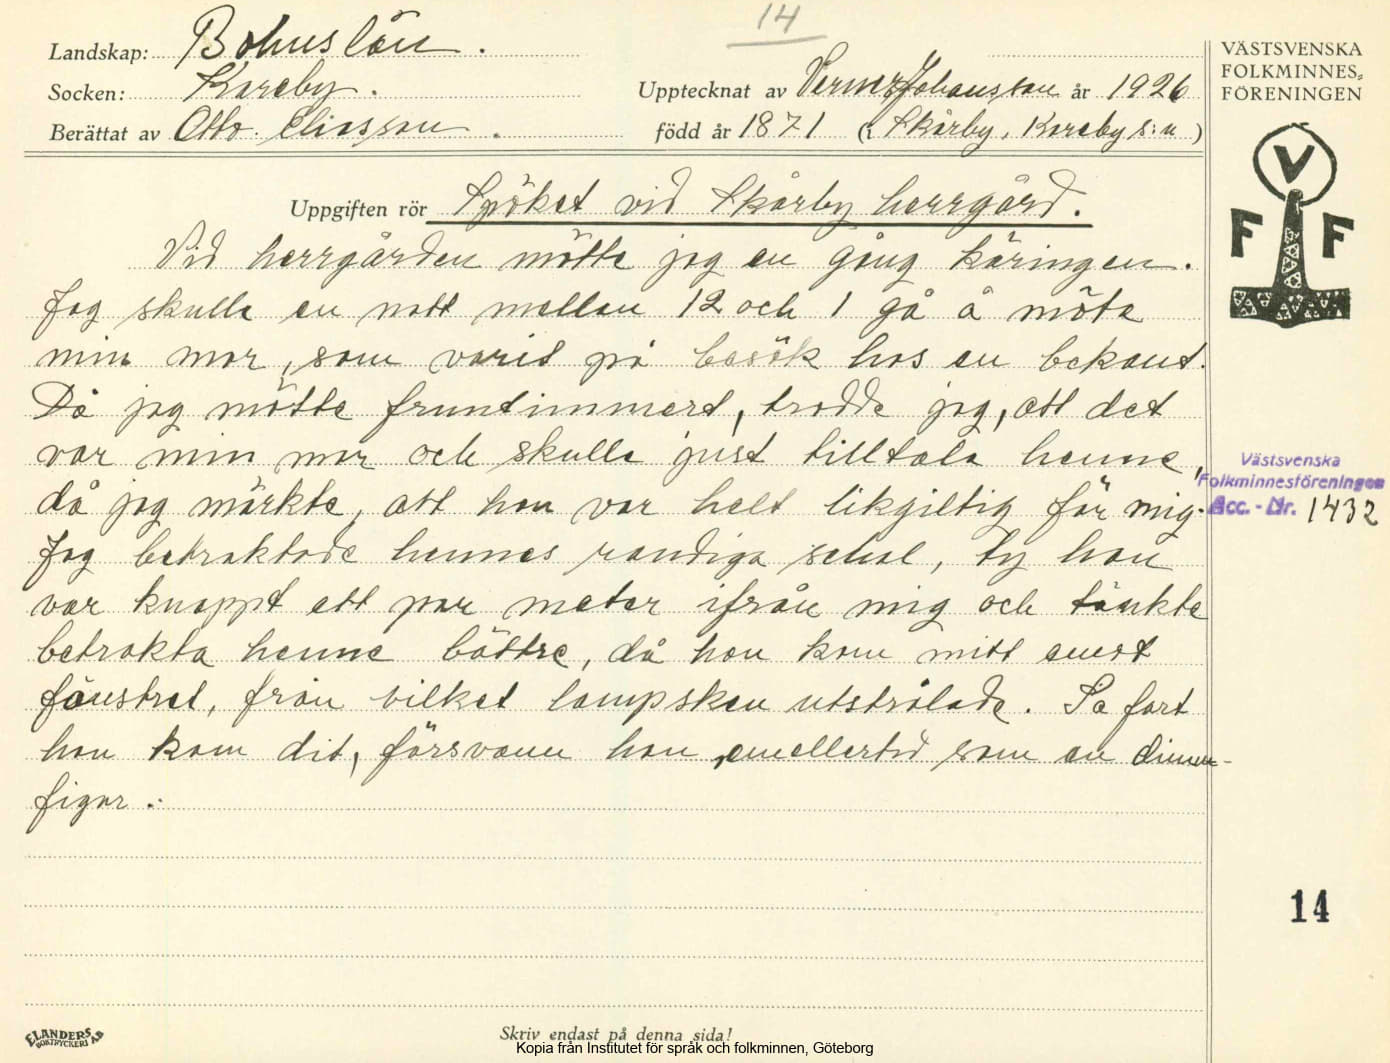 14
Landskap: Bohuslän.
VÄSTSVENSKA
FOLKMINNES=
FÖRENINGEN
Socken: Kareby.
Upptecknat av Verner Johansson år 1926
Berättat av Otto Eliasson.
född år 1871 (i Skårby, Kareby s:n)
V
F F
Uppgiften rör Spöket vid Skårby herrgård.
Vid herrgården mötte jag en gång käringen.
Jag skulle en natt mellan 12 och 1 gå å möta
min mor, som varit på besök hos en bekant.
Då jag mötte fruntimmert, trodde jag, att det
var min mor och skulle just tilltala henne,
då jag märkte, att hon var helt likgiltig för mig.
Jag betraktade hennes randiga schal, ty hon
var knappt ett par meter ifrån mig och tänkte
betrakta henne bättre, då hon kom mitt emot
fönstret, från vilket lampsken utstrålade. Så fort
hon kom dit, försvann hon emellertid som en dimm-
figur.
Västsvenska
Folkminnesföreningen
Acc. - Nr. 1432
14
ELANDERS
BOKTRYCKERI AB
Skriv endast på denna sida!
Kopia från Institutet för språk och folkminnen, Göteborg